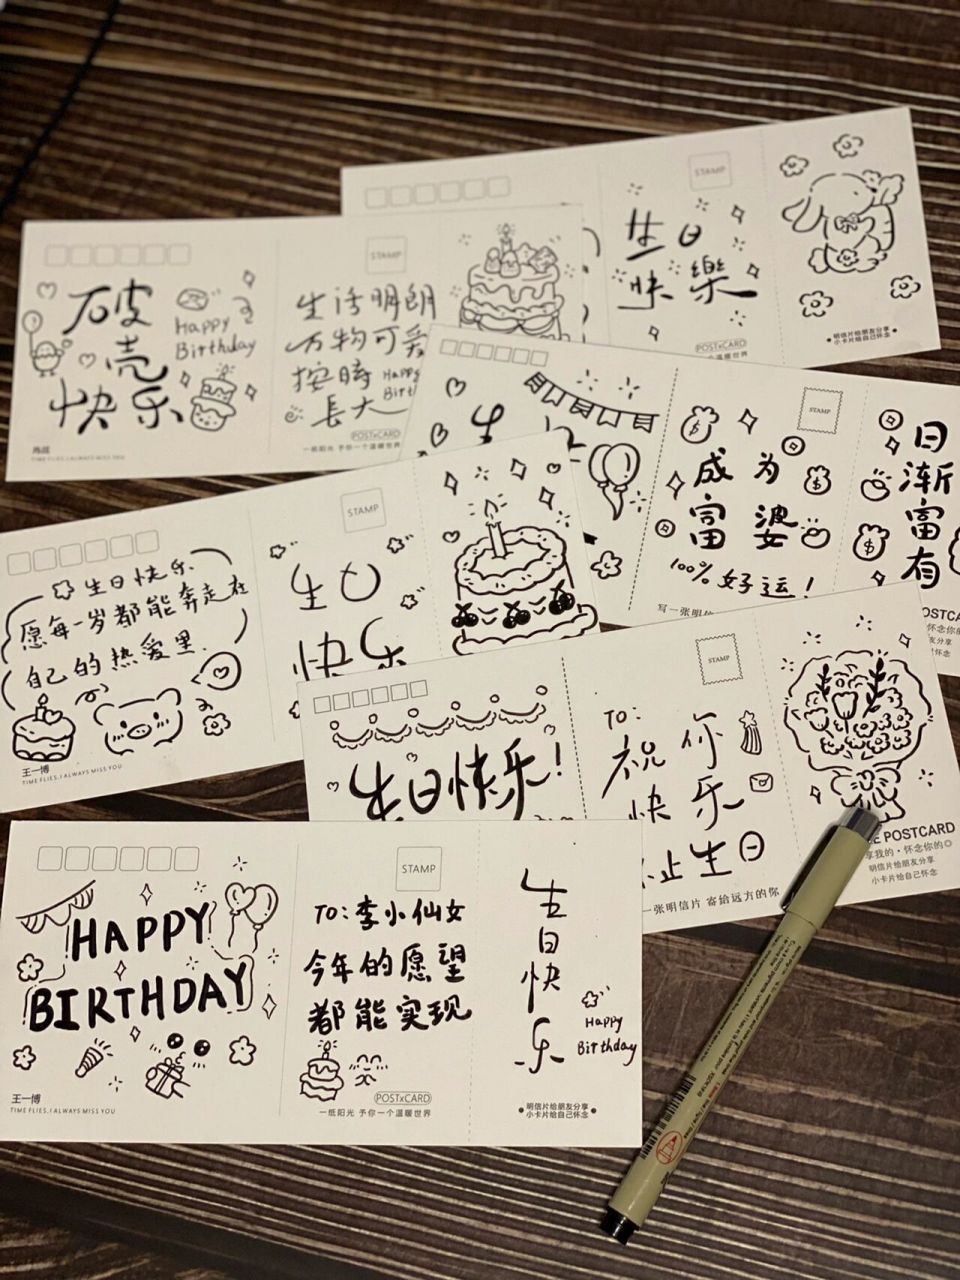 STAMP
生日
快樂
POSTxCARD
个温暖世界
明信片给朋友分享
小卡片给自己怀念
破
壳
快乐
Happy
Birthday
肖战
TIME FLIES, I ALWAYS MISS YOU
STAMP
生活明朗
万物可爱
按時
長大
Happy
Birt
POSTxCARD
一纸阳光 予你一个温暖世界
生
STAMP
成为
富婆
100% 好运!
写一张明信
日
渐
富
有
OSTCARD
怀念你的
友分享
己怀念
生日快乐
愿每一岁都能奔走在
自己的热爱里.
王一博
TIME FLIES, I ALWAYS MISS YOU
STAMP
生日
快乐
生日快乐!
STAMP
TO:
祝你
快乐
不止生日
一张明信片 寄给远方的你
EE POSTCARD
享我的·怀念你的
明信片给朋友分享
小卡片给自己怀念
HAPPY
BIRTHDAY
王一博
TIME FLIES, I ALWAYS MISS YOU
STAMP
TO:李小仙女
今年的愿望
都能实现
POSTxCARD
一纸阳光 予你一个温暖世界
生
日
快
乐
Happy
Birthday
明信片给朋友分享
小卡片给自己怀念